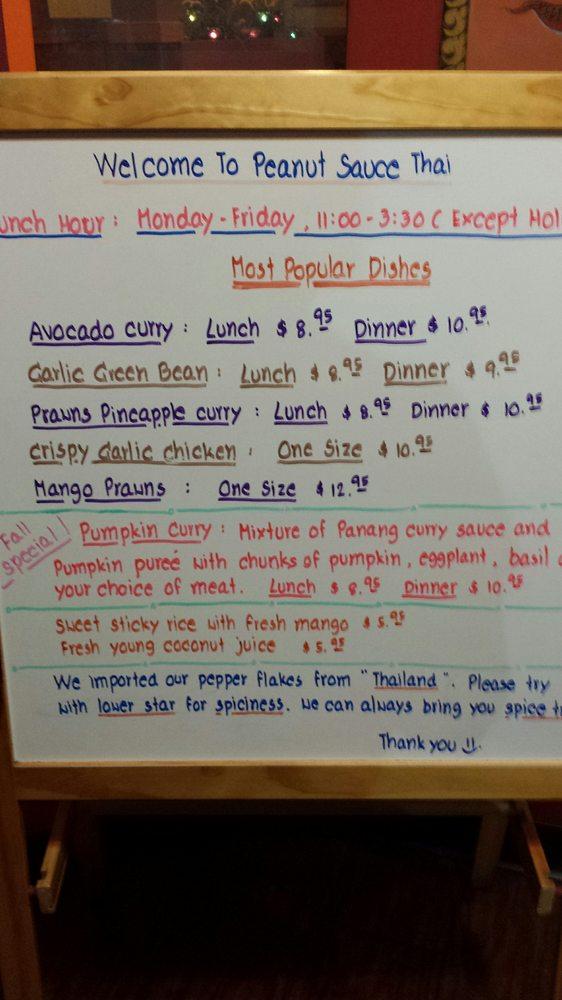 Welcome To Peanut Sauce Thai
unch Hour : Monday - Friday , 11:00 - 3:30 ( Except Hol
Most Popular Dishes
Avocado curry : Lunch $ 8.95 Dinner $ 10.95
Garlic Green Bean : Lunch $ 8.95 Dinner $ 9.95
Prawns Pineapple curry : Lunch $ 8.95 Dinner $ 10.95
crispy Garlic chicken : One Size $ 10.95
Mango Prawns : One Size $ 12.95
Fall special!
Pumpkin Curry : Mixture of Panang curry sauce and
Pumpkin pureé with chunks of pumpkin, eggplant, basil
your choice of meat. Lunch $ 8.95 Dinner $ 10.95
Sweet sticky rice with fresh mango $ 5.95
Fresh young coconut juice $ 5.95
We imported our pepper flakes from "Thailand". Please try
with lower star for spiciness. We can always bring you spice
Thank you